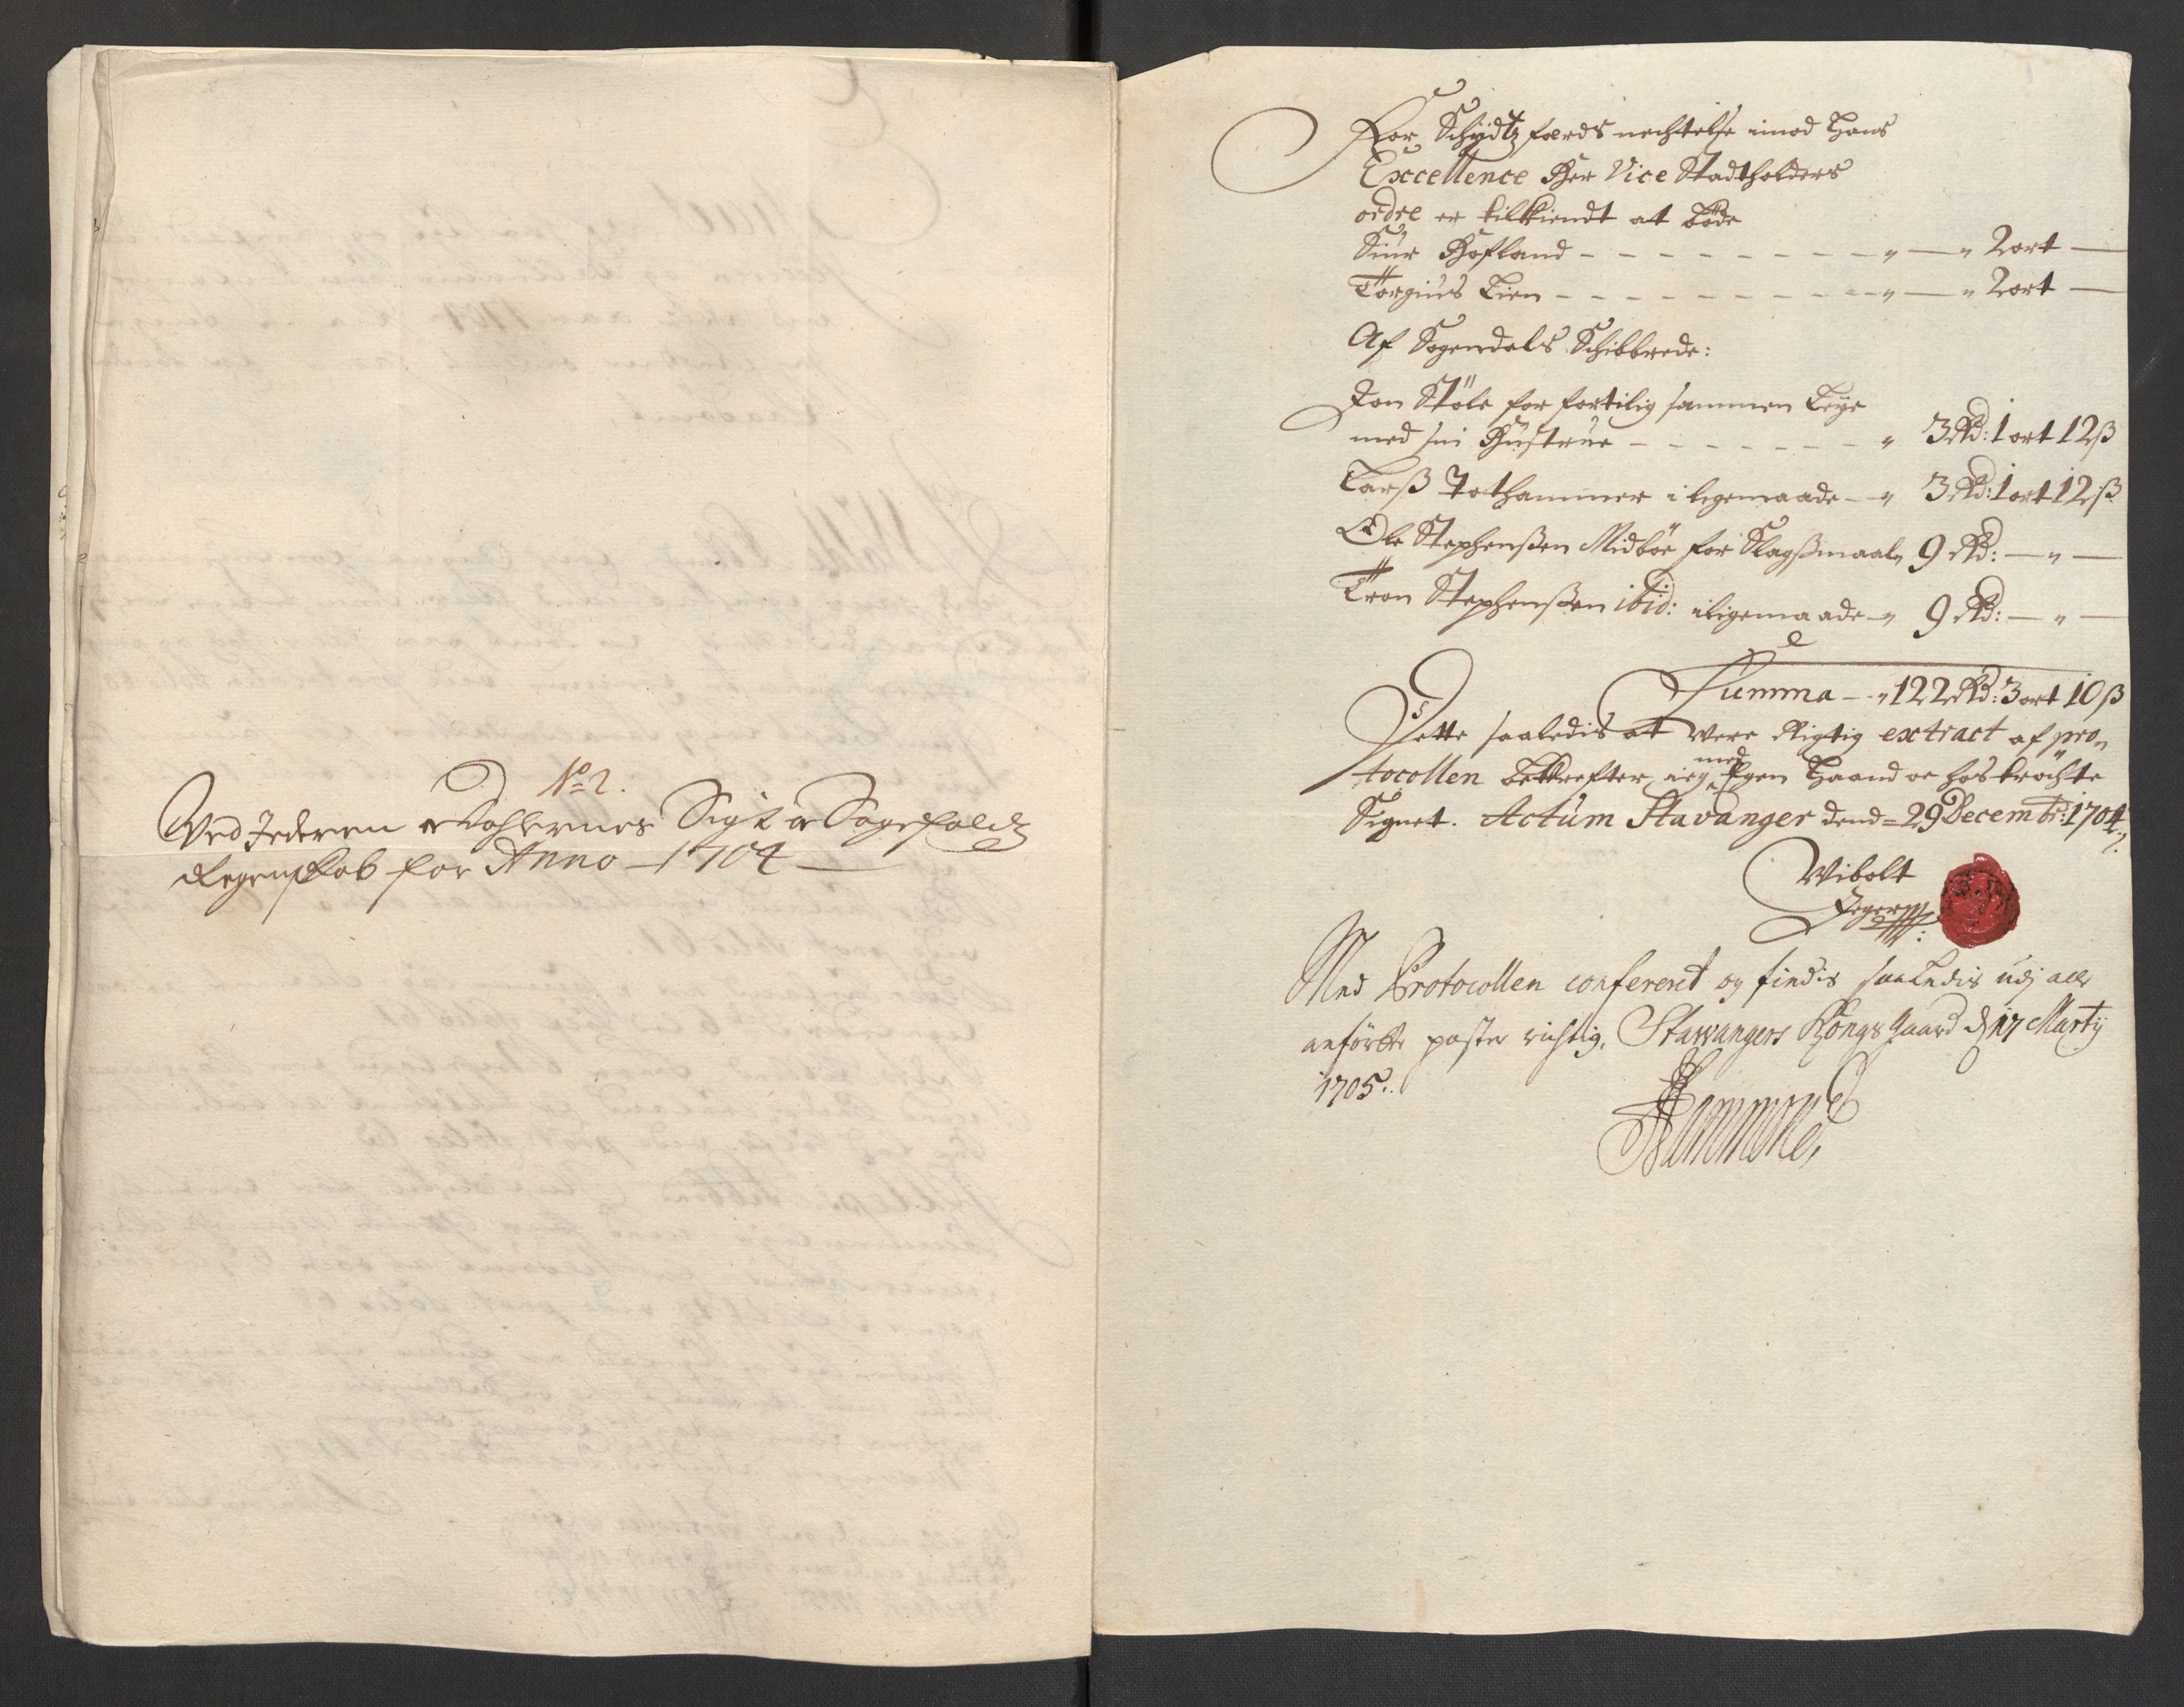 No 2.
Ved Jederen og Dahlernes Sigt og Sagefalds
Regenskab for Anno 1704
For Schydtzfærds nechtelse imod Hans
Excellence Her Vice Stadtholders
ordre er tilkiendt at bøde
Siur Hofland - - - - - - - - - " — " 2 ort —
Torgius Lien - - - - - - - - - " — " 2 ort —
Af Sogendals Schibbrede:
Jon Støle for fortilig sammen leye
med sin Hustrue - - - - - - - " 3 Rd: 1 ort 12 ß
Larß Tothammer i ligemaade - " 3 Rd: 1 ort 12 ß
Ole Stephenßen Midbøe for Slagßmaal " 9 Rd: — " —
Tron Stephenßen ibid: i ligemaade - " 9 Rd: — " —
Summa - - " 122 Rd: 3 ort 10 ß
Dette saaledis at were Rigtig extract af pro-
tocollen bekrefter ieg med Egen Haand oc hoströchte
Signet. Actum Stavanger dend 29 Decembr: 1704
Wibolt
Jeger
Med Protocollen conferent og findis saaledis udj alle
anførte poster richtig, Stawangers Kongsgaard d 17 Martij
1705.